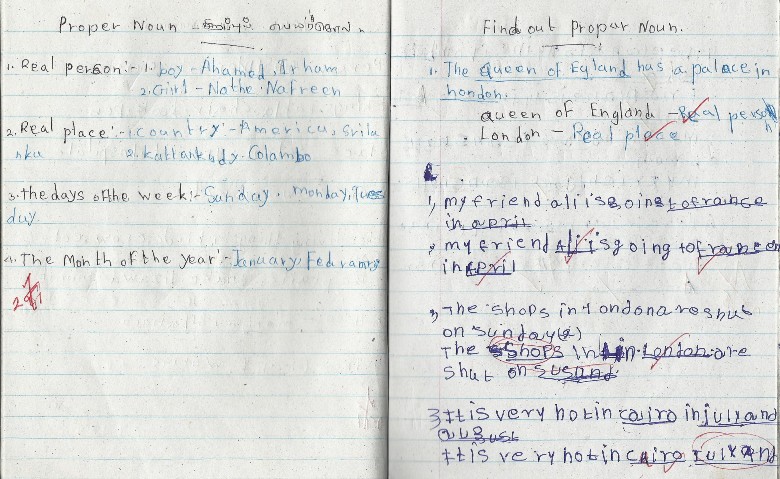 Proper Noun - சிறப்புப் பெயர்ச்சொல்.
1. Real person:- 1. boy - Ahamed, Arham
2. Girl - Nathe. Nafreen
2. Real place:- 1. country:- America, Srila
nka 2. kattankudy. Colambo
3. the days of the week:- Sunday. monday, Tues
day
4. The Month of the year:- January, Fedramry
Find out Propur Noun.
1. The Queen of Eyland has a palace in
hondon.
queen of England - Real person
. London - Real place
1, my friend ali is going to france
in april
2, my friend Ali is going to france
in April
3, The shops in london are shut
on sunday (2)
The shops in London are
shut on susand.
3 It is very hot in cairo in july and
august
It is very hot in cairo July And